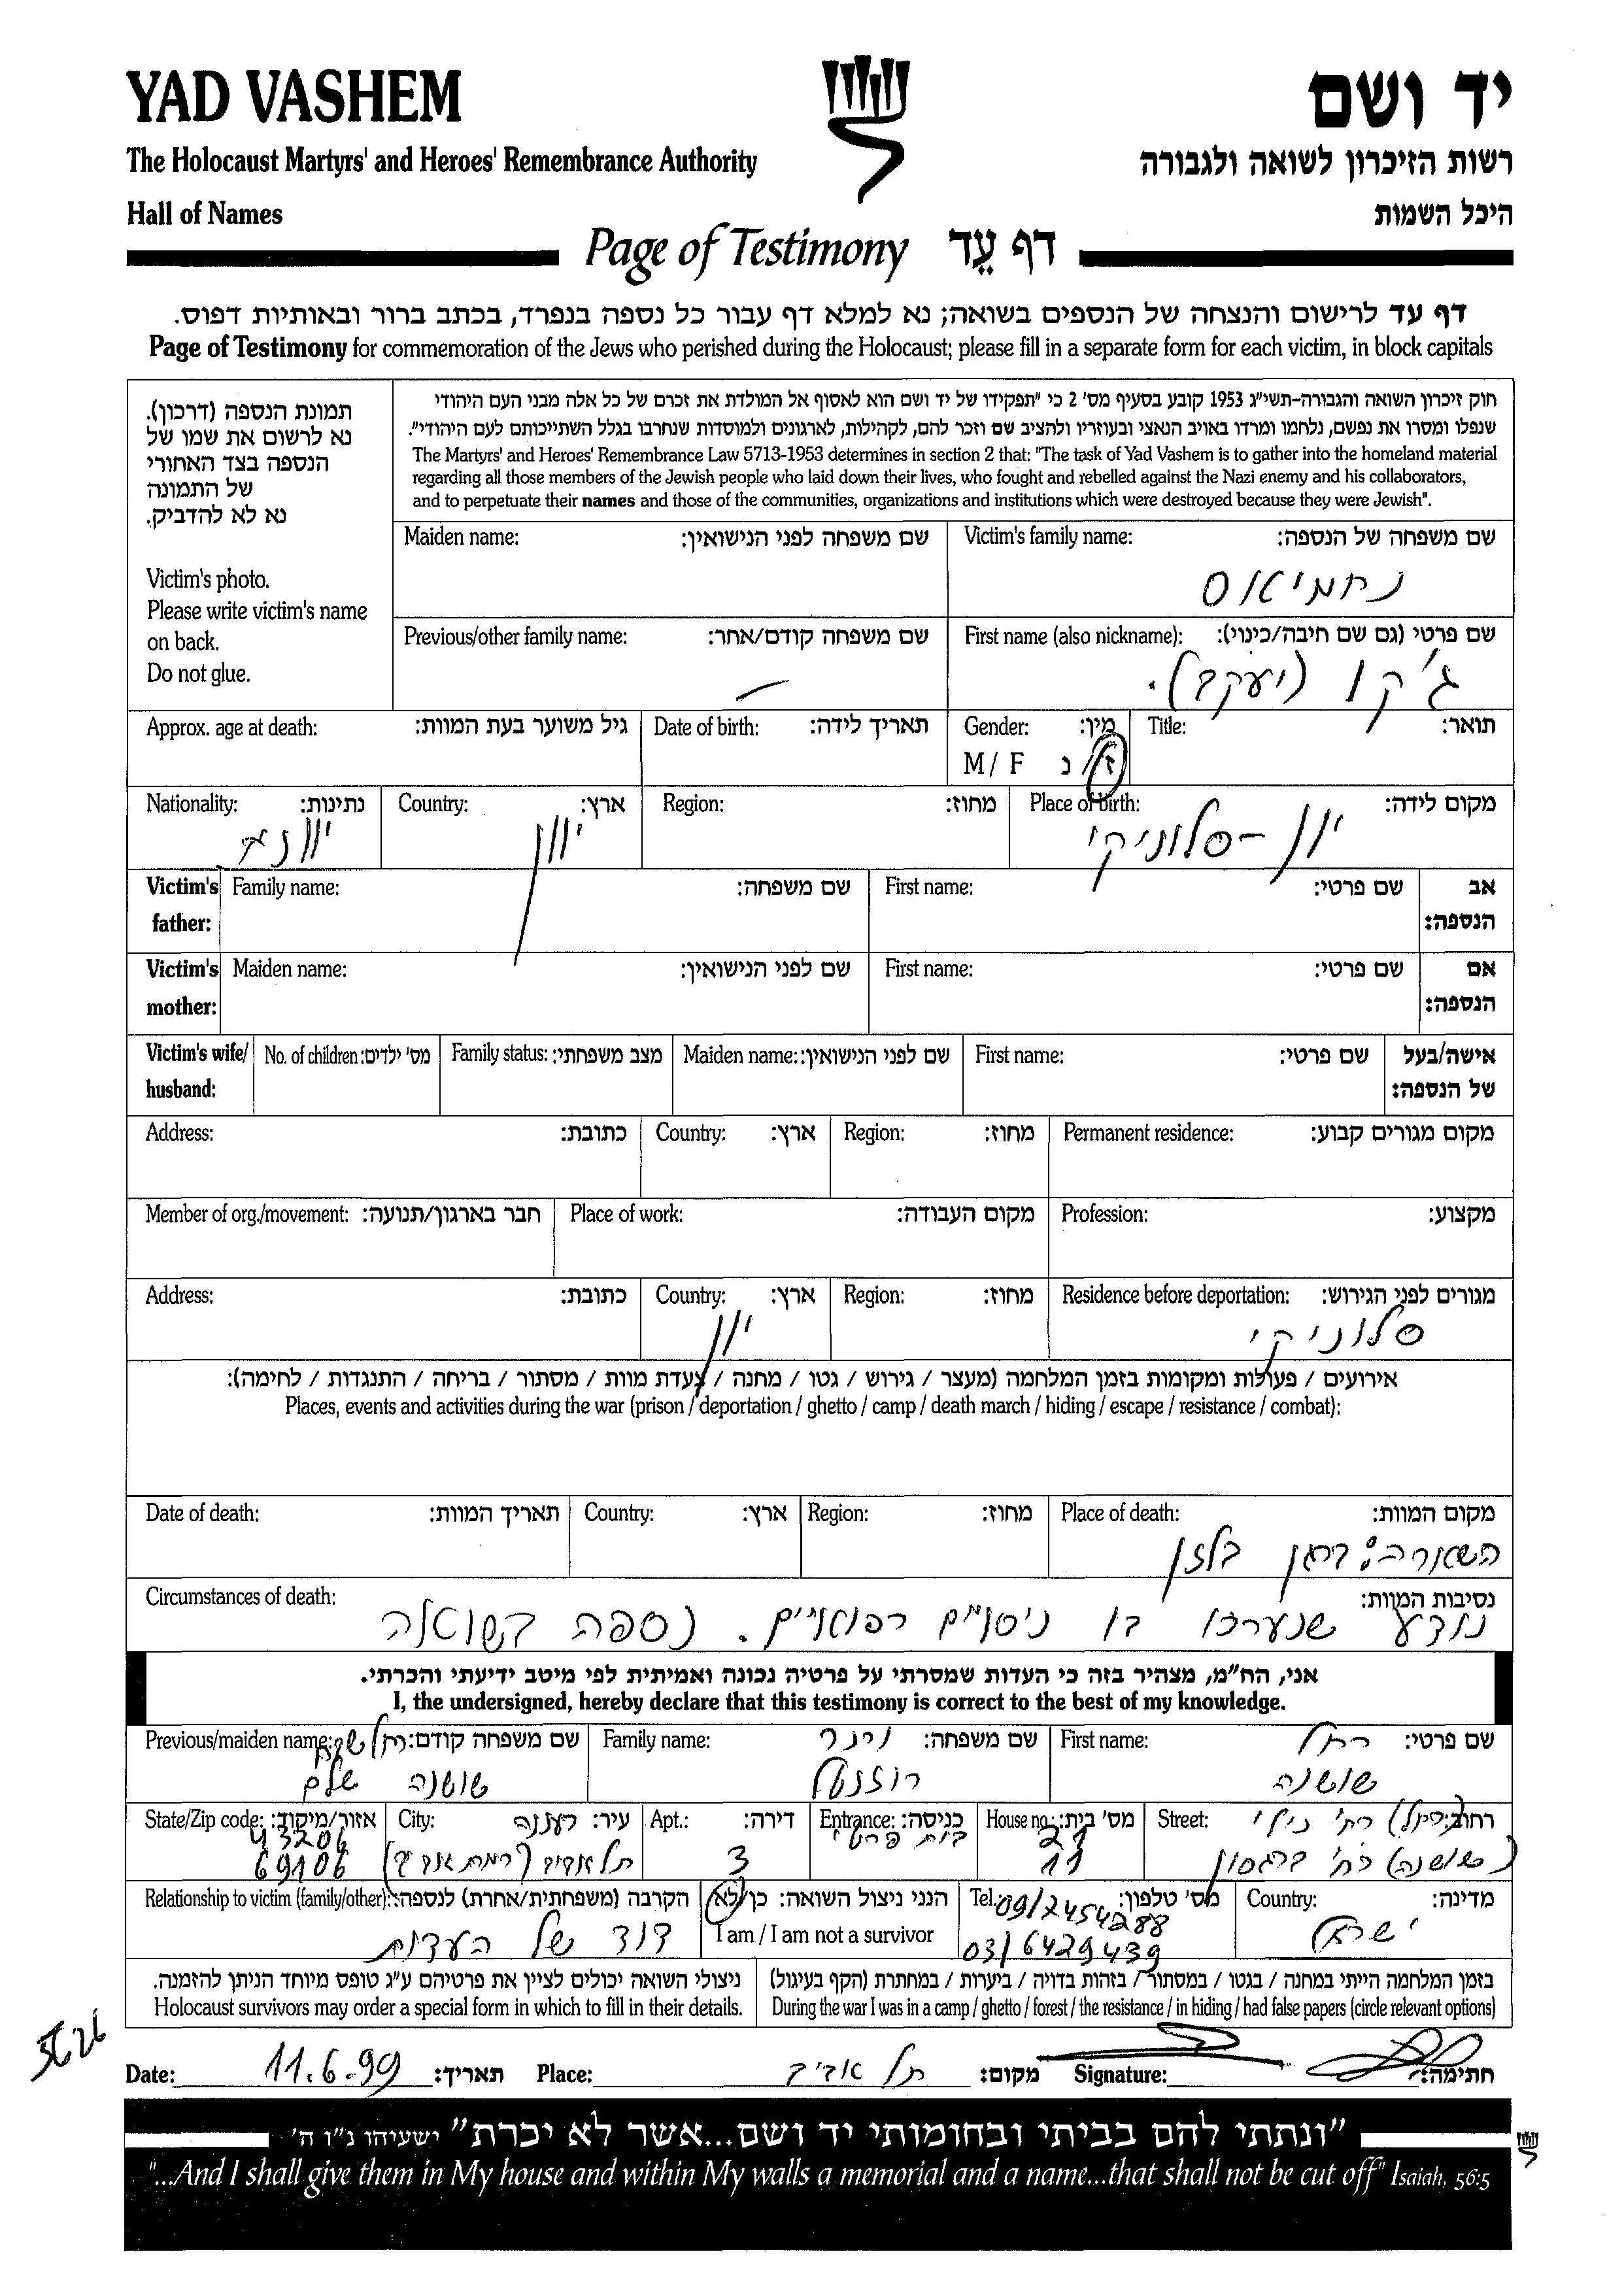 YAD VASHEM
יד ושם
The Holocaust Martyrs' and Heroes' Remembrance Authority
רשות הזיכרון לשואה ולגבורה
Hall of Names
היכל השמות
Page of Testimony דף עֵד
דף עד לרישום והנצחה של הנספים בשואה; נא למלא דף עבור כל נספה בנפרד, בכתב ברור ובאותיות דפוס.
Page of Testimony for commemoration of the Jews who perished during the Holocaust; please fill in a separate form for each victim, in block capitals
תמונת הנספה (דרכון).
נא לרשום את שמו של
הנספה בצד האחורי
של התמונה
נא לא להדביק.
Victim's photo.
Please write victim's name
on back.
Do not glue.
חוק זיכרון השואה והגבורה-תשי"ג 1953 קובע בסעיף מס' 2 כי "תפקידו של יד ושם הוא לאסוף אל המולדת את זכרם של כל אלה מבני העם היהודי
שנפלו ומסרו את נפשם, נלחמו ומרדו באויב הנאצי ובעוזריו ולהציב שם וזכר להם, לקהילות, לארגונים ולמוסדות שנחרבו בגלל השתייכותם לעם היהודי".
The Martyrs' and Heroes' Remembrance Law 5713-1953 determines in section 2 that: "The task of Yad Vashem is to gather into the homeland material
regarding all those members of the Jewish people who laid down their lives, who fought and rebelled against the Nazi enemy and his collaborators,
and to perpetuate their names and those of the communities, organizations and institutions which were destroyed because they were Jewish".
Maiden name: שם משפחה לפני הנישואין: Victim's family name: שם משפחה של הנספה:
נחמיאס
Previous/other family name: שם משפחה קודם/אחר: First name (also nickname): שם פרטי (גם שם חיבה/כינוי):
ג'קו (יעקב).
Approx. age at death: גיל משוער בעת המוות: Date of birth: תאריך לידה: Gender: מין: Title: תואר:
M / F ז/נ
Nationality: נתינות: Country: ארץ: Region: מחוז: Place of birth: מקום לידה:
יוונית יוון יוון - סלוניקי
Victim's father: Family name: שם משפחה: First name: שם פרטי: אב הנספה:
Victim's mother: Maiden name: שם לפני הנישואין: First name: שם פרטי: אם הנספה:
Victim's wife/ husband: No. of children: מס' ילדים: Family status: מצב משפחתי: Maiden name: שם לפני הנישואין: First name: שם פרטי: אישה/בעל של הנספה:
Address: כתובת: Country: ארץ: Region: מחוז: Permanent residence: מקום מגורים קבוע:
Member of org./movement: חבר בארגון/תנועה: Place of work: מקום העבודה: Profession: מקצוע:
Address: כתובת: Country: ארץ: Region: מחוז: Residence before deportation: מגורים לפני הגירוש:
יוון סלוניקי
אירועים / פעולות ומקומות בזמן המלחמה (מעצר / גירוש / גטו / מחנה / צעדת מוות / מסתור / בריחה / התנגדות / לחימה):
Places, events and activities during the war (prison / deportation / ghetto / camp / death march / hiding / escape / resistance / combat):
Date of death: תאריך המוות: Country: ארץ: Region: מחוז: Place of death: מקום המוות:
השארה: ברגן בלזן
Circumstances of death: נסיבות המוות:
נודע שנערכו בו ניסויים רפואיים. נספה בשואה
אני, הח"מ, מצהיר בזה כי העדות שמסרתי על פרטיה נכונה ואמיתית לפי מיטב ידיעתי והכרתי.
I, the undersigned, hereby declare that this testimony is correct to the best of my knowledge.
Previous/maiden name: שם משפחה קודם: Family name: שם משפחה: First name: שם פרטי:
רחל
שושנה שלם רוזנטל שושנה
State/Zip code: אזור/מיקוד: City: עיר: Apt.: דירה: Entrance: כניסה: House no.: מס' בית: Street: רחוב:
43206 רעננה בית פרטי 21 רח' נילי
69106 תל אביב (רמת אביב) 3 11 (שושנה) רח' ברגסון
Relationship to victim (family/other): הקרבה (משפחתית/אחרת) לנספה: הנני ניצול השואה: כן/לא Tel.: מס' טלפון: Country: מדינה:
I am / I am not a survivor
דוד של העדות 09/7454288 ישראל
03/6429439
ניצולי השואה יכולים לציין את פרטיהם ע"ג טופס מיוחד הניתן להזמנה.
Holocaust survivors may order a special form in which to fill in their details.
בזמן המלחמה הייתי במחנה / בגטו / במסתור / בזהות בדויה / ביערות / במחתרת (הקף בעיגול)
During the war I was in a camp / ghetto / forest / the resistance / in hiding / had false papers (circle relevant options)
Date: 11.6.99 תאריך: Place: תל אביב מקום: Signature: חתימה:
"ונתתי להם בביתי ובחומותי יד ושם...אשר לא יכרת" ישעיהו נ"ו ה'
"...And I shall give them in My house and within My walls a memorial and a name...that shall not be cut off" Isaiah, 56:5